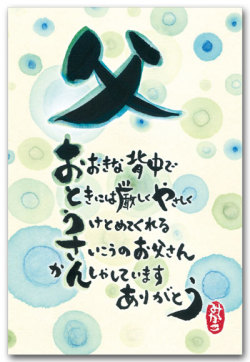 父
おおきな背中で
ときには厳しくやさしく
うけとめてくれる
さいこうのお父さん
かんしゃしています
ありがとう